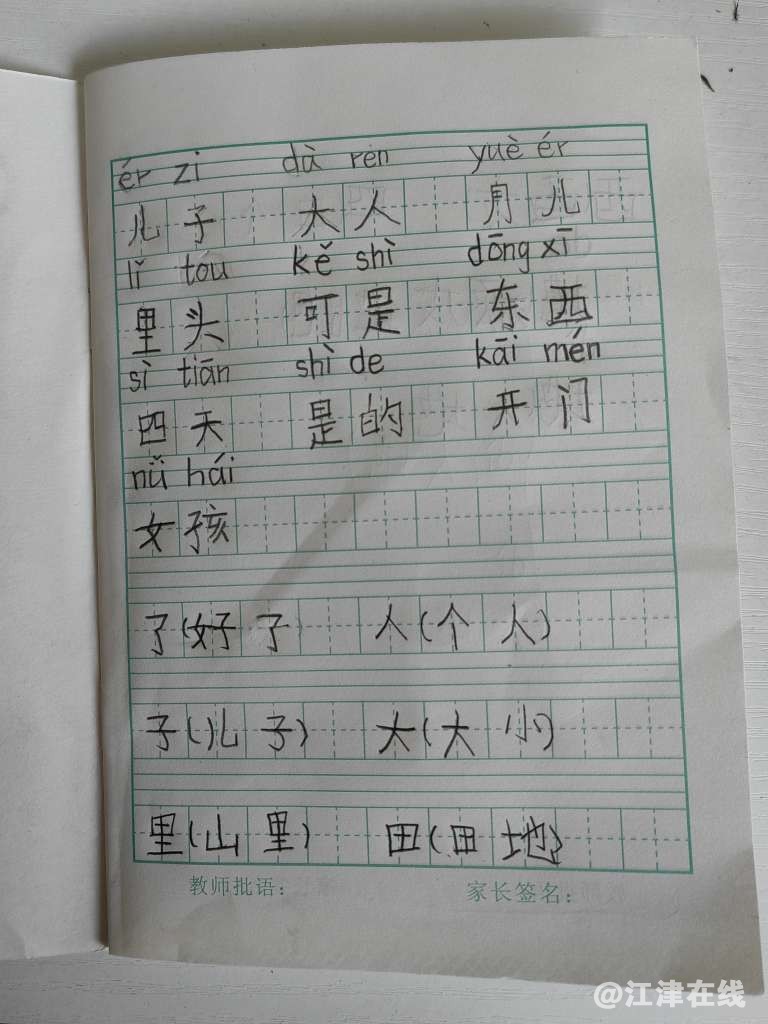 ér zi dà ren yuè ér
儿子 大人 月儿
lǐ tou kě shì dōng xī
里头 可是 东西
sì tiān shì de kāi mén
四天 是的 开门
nǚ hái
女孩
了(好了 人(个人)
子(儿子) 大(大小)
里(山里) 田(田地)
教师批语: 家长签名:
@江津在线